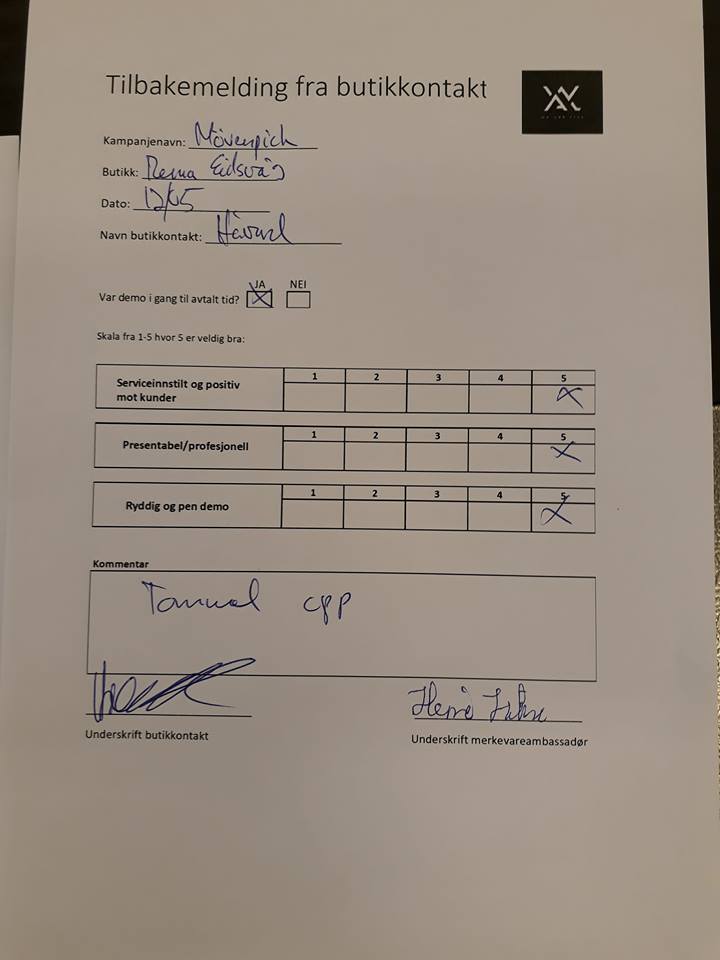 Tilbakemelding fra butikkontakt
Kampanjenavn: Mövenpich
Butikk: Rema Eidsvåg
Dato: 12/05
Navn butikkontakt: Håvard
JA NEI
Var demo i gang til avtalt tid?
Skala fra 1-5 hvor 5 er veldig bra:
1 2 3 4 5
Serviceinnstilt og positiv
mot kunder
1 2 3 4 5
Presentabel/profesjonell
1 2 3 4 5
Ryddig og pen demo
Kommentar
Underskrift butikkontakt
Underskrift merkevareambassadør